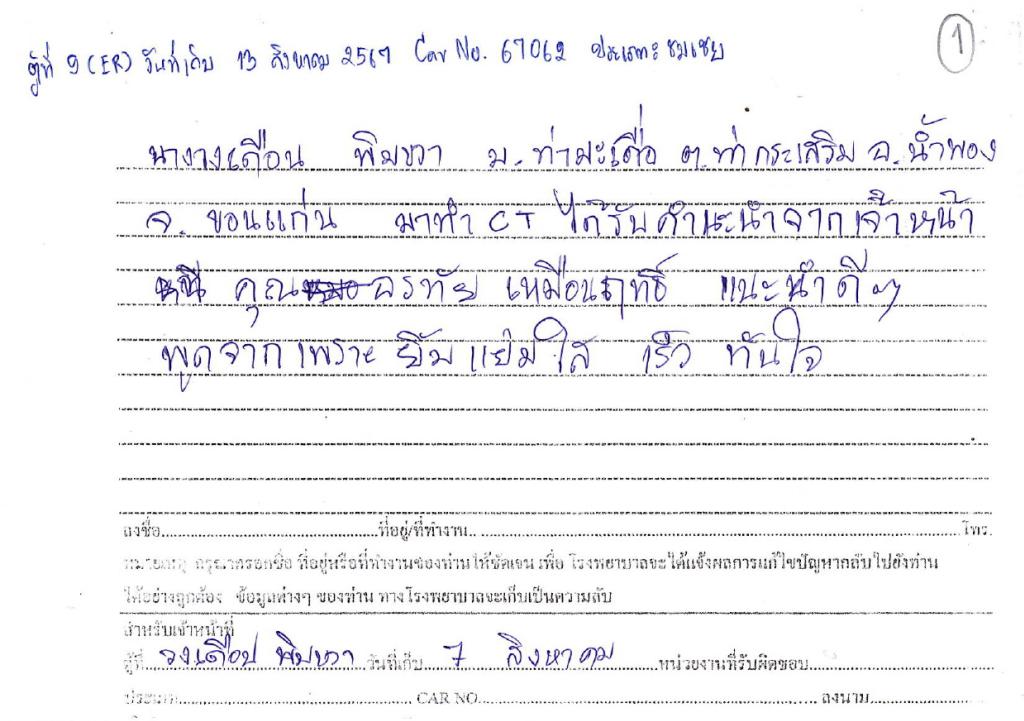 1
ตู้ที่ 9 (ER) วันที่เก็บ 13 สิงหาคม 2567 Car No. 67062 ประเภท ชมเชย
นางวงเดือน พิมขวา บ.ท่ามะเดื่อ ต.ท่ากระเสริม อ.น้ำพอง
จ.ขอนแก่น มาทำ CT ได้รับคำแนะนำจากเจ้าหน้า
ที่ คุณ อรทัย เหมือนฤทธิ์ แนะนำดีๆ
พูดจาก เพราะ ยิ้มแย่มใส เร็ว ทันใจ
ลงชื่อ ที่อยู่/ที่ทำงาน โทร.
หมายเหตุ กรุณากรอกชื่อ ที่อยู่หรือที่ทำงานของท่านให้ชัดเจน เพื่อ โรงพยาบาลจะได้แจ้งผลการแก้ไขปัญหากลับไปยังท่าน
ได้อย่างถูกต้อง ข้อมูลต่างๆ ของท่าน ทางโรงพยาบาลจะเก็บเป็นความลับ
สำหรับเจ้าหน้าที่
ตู้ที่ วงเดือน พิมขวา วันที่เก็บ 7 สิงหาคม หน่วยงานที่รับผิดชอบ
ประเภท CAR NO. ลงนาม